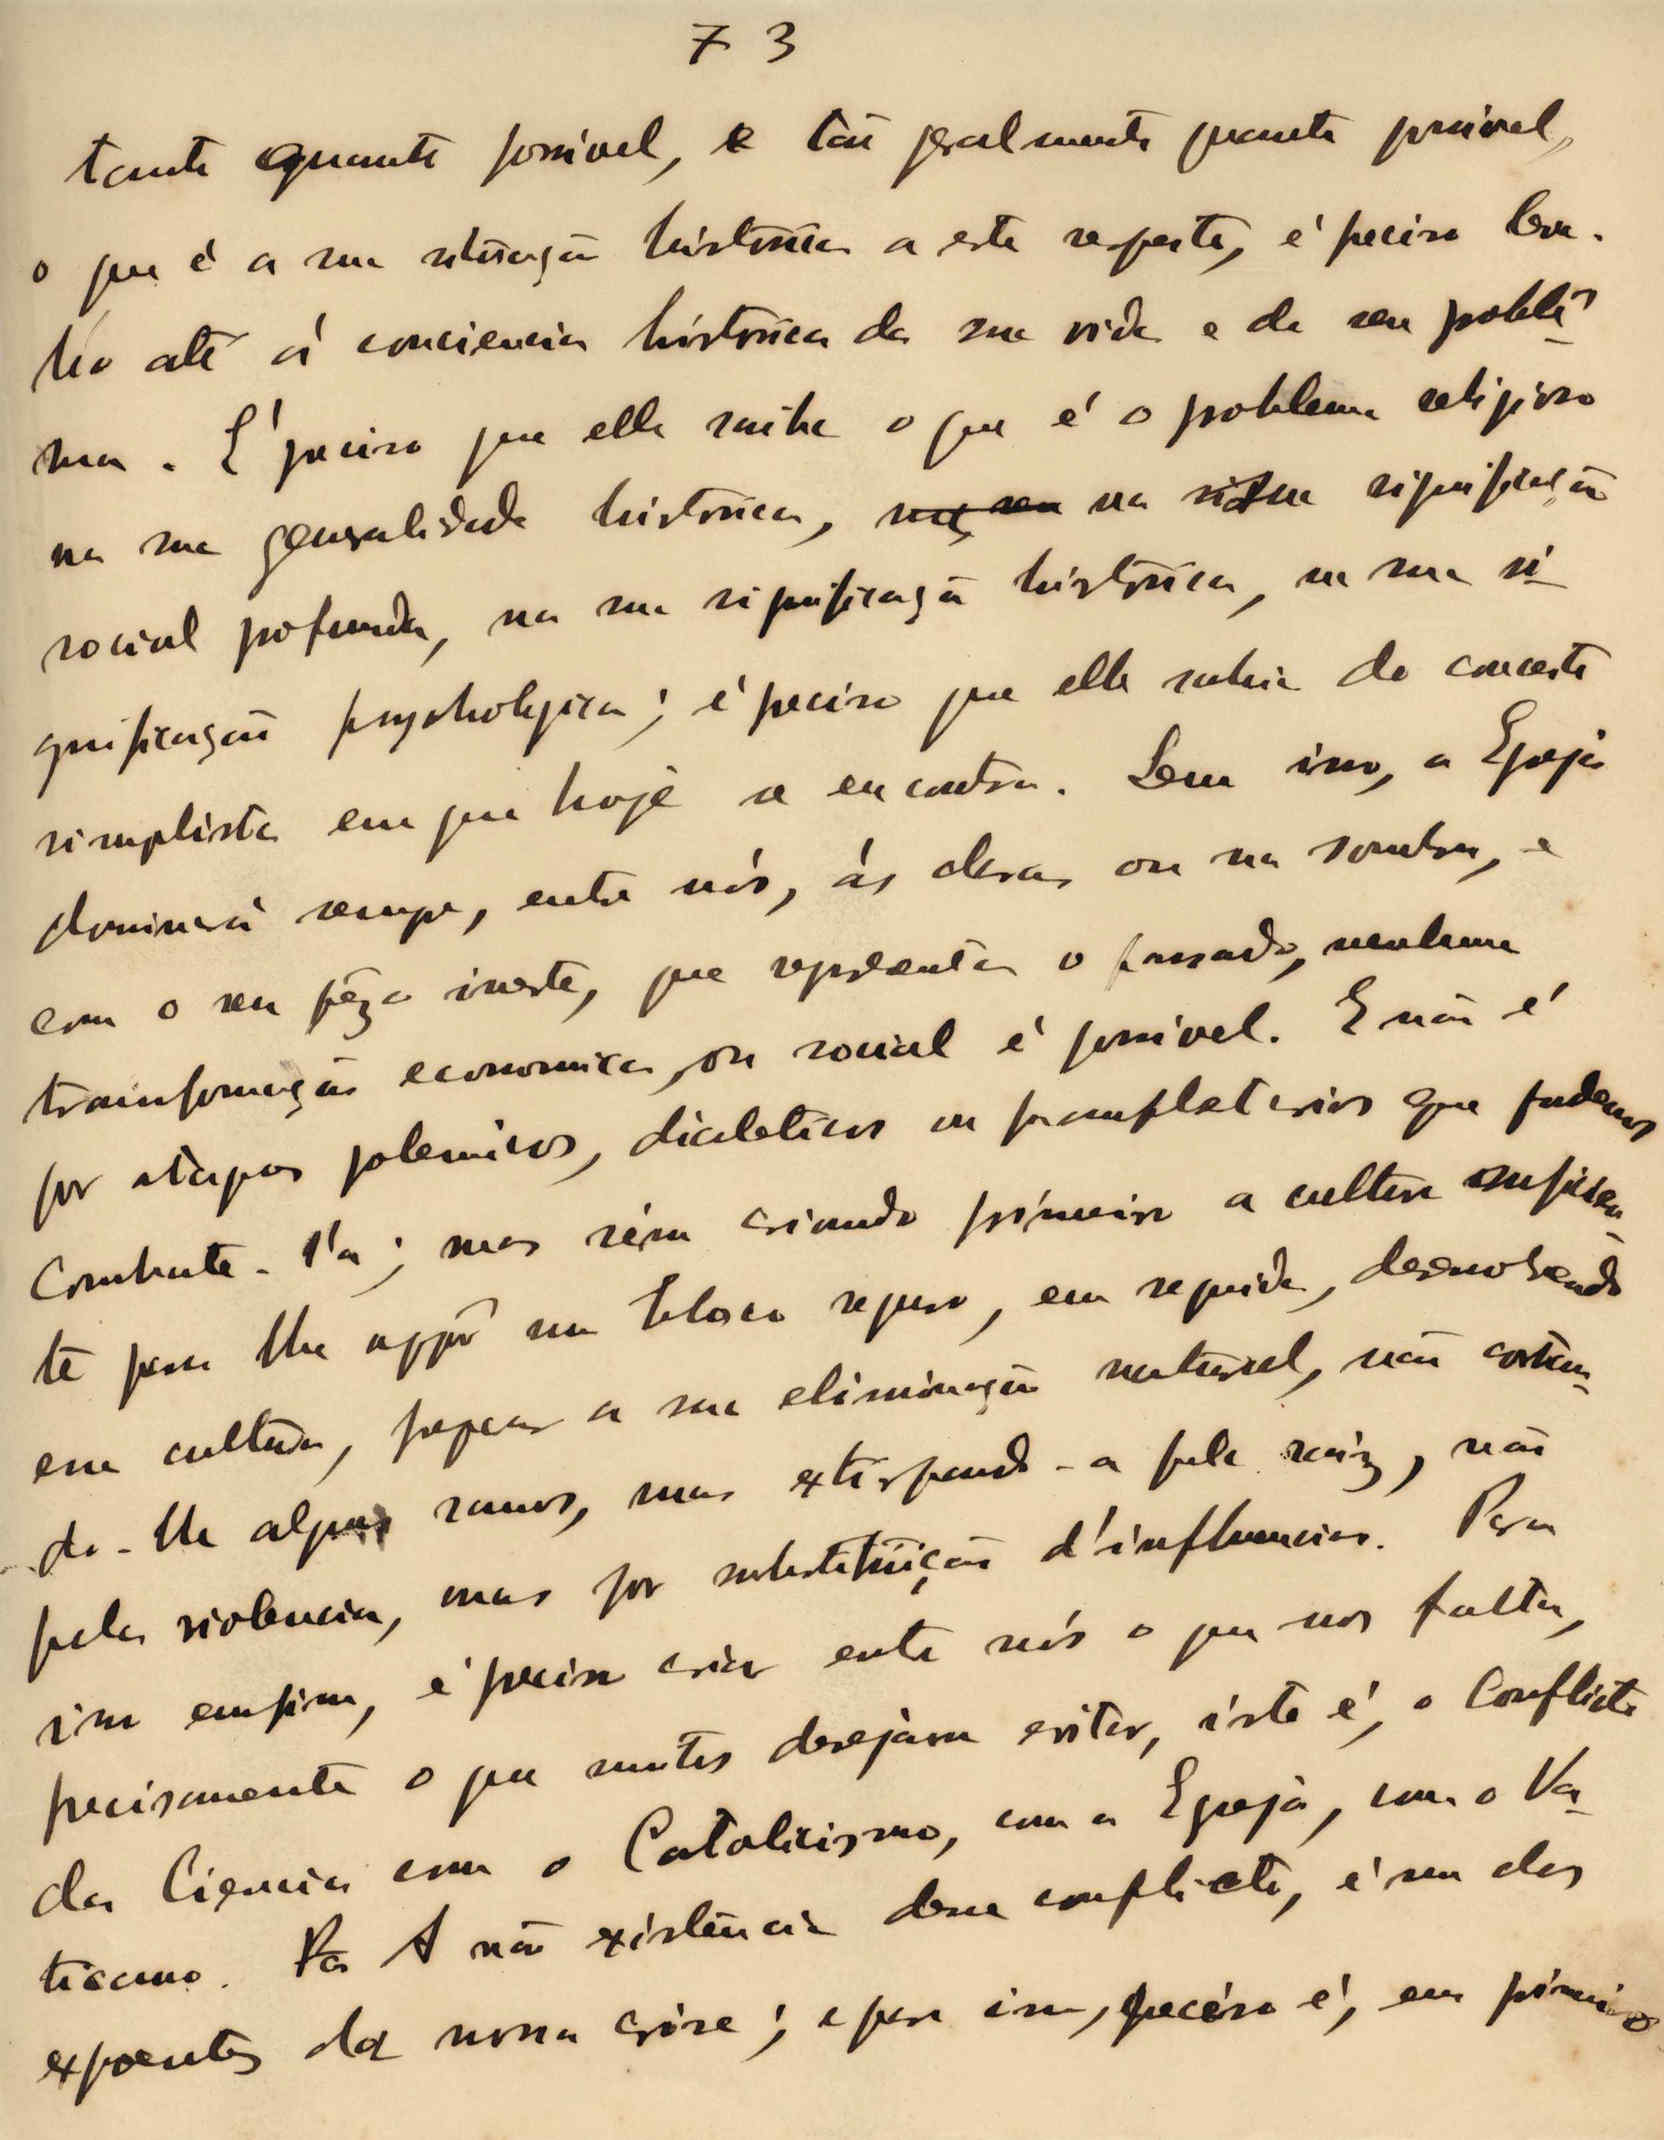 73
tanto quanto possivel, e tão geralmente quanto possivel,
o que é a sua situação histórica a este respeito, é preciso leva-
l'o até á conciencia histórica da sua vida e do seu problê-
ma. É preciso que elle saiba o que é o problema religioso
na sua generalidade histórica, na sua significação
social profunda, na sua significação histórica, na sua si-
gnificação psychologica; é preciso que elle saia do conceito
simplista em que hoje se encontra. Sem isso, a Egreja
dominará sempre, entre nós, ás claras ou na sombra, e
com o seu pêzo inerte, que representa o passado, nenhuma
transformação economica, ou social é possivel. E não é
por ataques polemicos, dialeticos ou pamfletarios que podemos
combate-l'a; mas sim criando primeiro a cultura suficien-
te para lhe oppôr um bloco seguro, em seguida, desenvolvendo
essa cultura, preparar a sua eliminação natural, não cortan-
do-lhe alguns ramos, mas extirpando-a pela raiz, não
pela violencia, mas por substituição d'influencias. Para
isso emfim, é preciso criar entre nós o que nos falta,
precisamente o que muitos desejam evitar, isto é, o Conflicto
da Ciencia com o Catolicismo, com a Egreja, com o Va-
ticano. A não existência desse conflicto, é um dos
expoentes da nossa crise; e para isso, preciso é, em primeiro